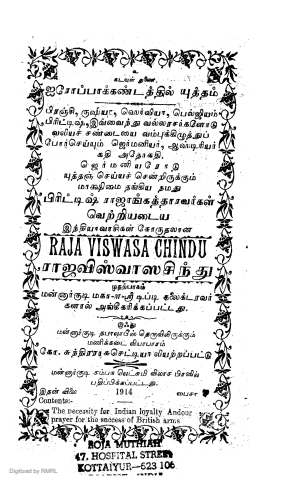 உ
கடவுள் துணை.
ஐரோப்பாக்கண்டத்தில் யுத்தம்
பிரஞ்சி, ருஷியா, ஸெர்வியா, பெல்ஜியம்
பிரிட்டிஷ், இவ்வைந்து வல்லரசர்களோடு
வலியச் சண்டையை வம்புக்கிழுத்துப்
போர்செய்யும் ஜெர்மனியர், ஆஸ்டிரியர்
கதி அதோகதி.
ஜெர்மனியரோடு
யுத்தஞ் செய்யச் சென்றிருக்கும்
மாக்ஷிமை தங்கிய நமது
பிரிட்டிஷ் ராஜாங்கத்தாரவர்கள்
வெற்றியடைய
இந்தியாவாசிகள் கோருதலான
RAJA VISWASA CHINDU
ராஜவிஸ்வாஸசிந்து
முதற்பாகம்
மன்னார்குடி மகா-ள-ஸ்ரீ டிப்டி கலெக்டரவர்
களால் அங்கீகரிக்கப்பட்டது.
இஃது
மன்னார்குடி தபாலாபீஸ் தெருவிலிருக்கும்
மணிக்கடை வியாபாரம்
கோ. சுந்திரராசுசெட்டியாலியற்றப்பட்டு
மன்னார்குடி சம்பக லெட்சுமி விலாச பிரஸில்
பதிப்பிக்கப்பட்டது.
இதன் விலை 1914 பைசா
Contents:-
The necessity for Indian loyalty Andour
prayer for the success of British arms
ROJA MUTHIAH
47, HOSPITAL STREET
KOTTAIYUR-623 106
Digitized by RMRL